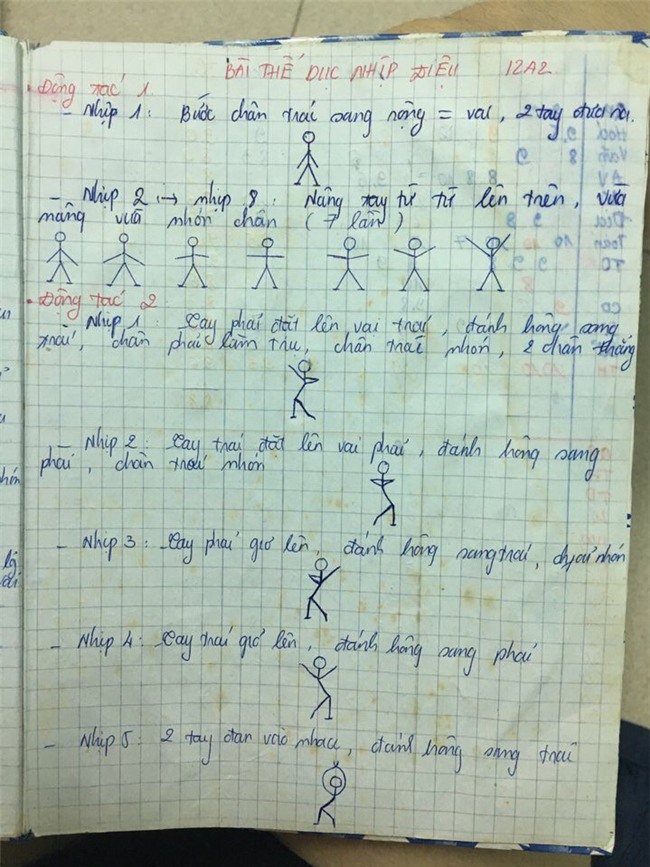 BÀI THỂ DỤC NHỊP ĐIỆU 12A2
• Động tác 1.
- Nhịp 1: Bước chân trái sang rộng = vai, 2 tay đưa ra.
- Nhịp 2 → nhịp 8: Nâng tay từ từ lên trên, vừa
nâng vừa nhón chân (7 lần)
• Động tác 2
Nhịp 1: Tay phải đặt lên vai trái, đánh hông sang
trái, chân phải làm trụ, chân trái nhón, 2 chân thẳng
Nhịp 2: Tay trái đặt lên vai phải, đánh hông sang
phải, chân trái nhón
- Nhịp 3: Tay phải giơ lên, đánh hông sang trái, nhón
- Nhịp 4: Tay trái giơ lên, đánh hông sang phải
- Nhịp 5: 2 tay đan vào nhau, đánh hông sang trái